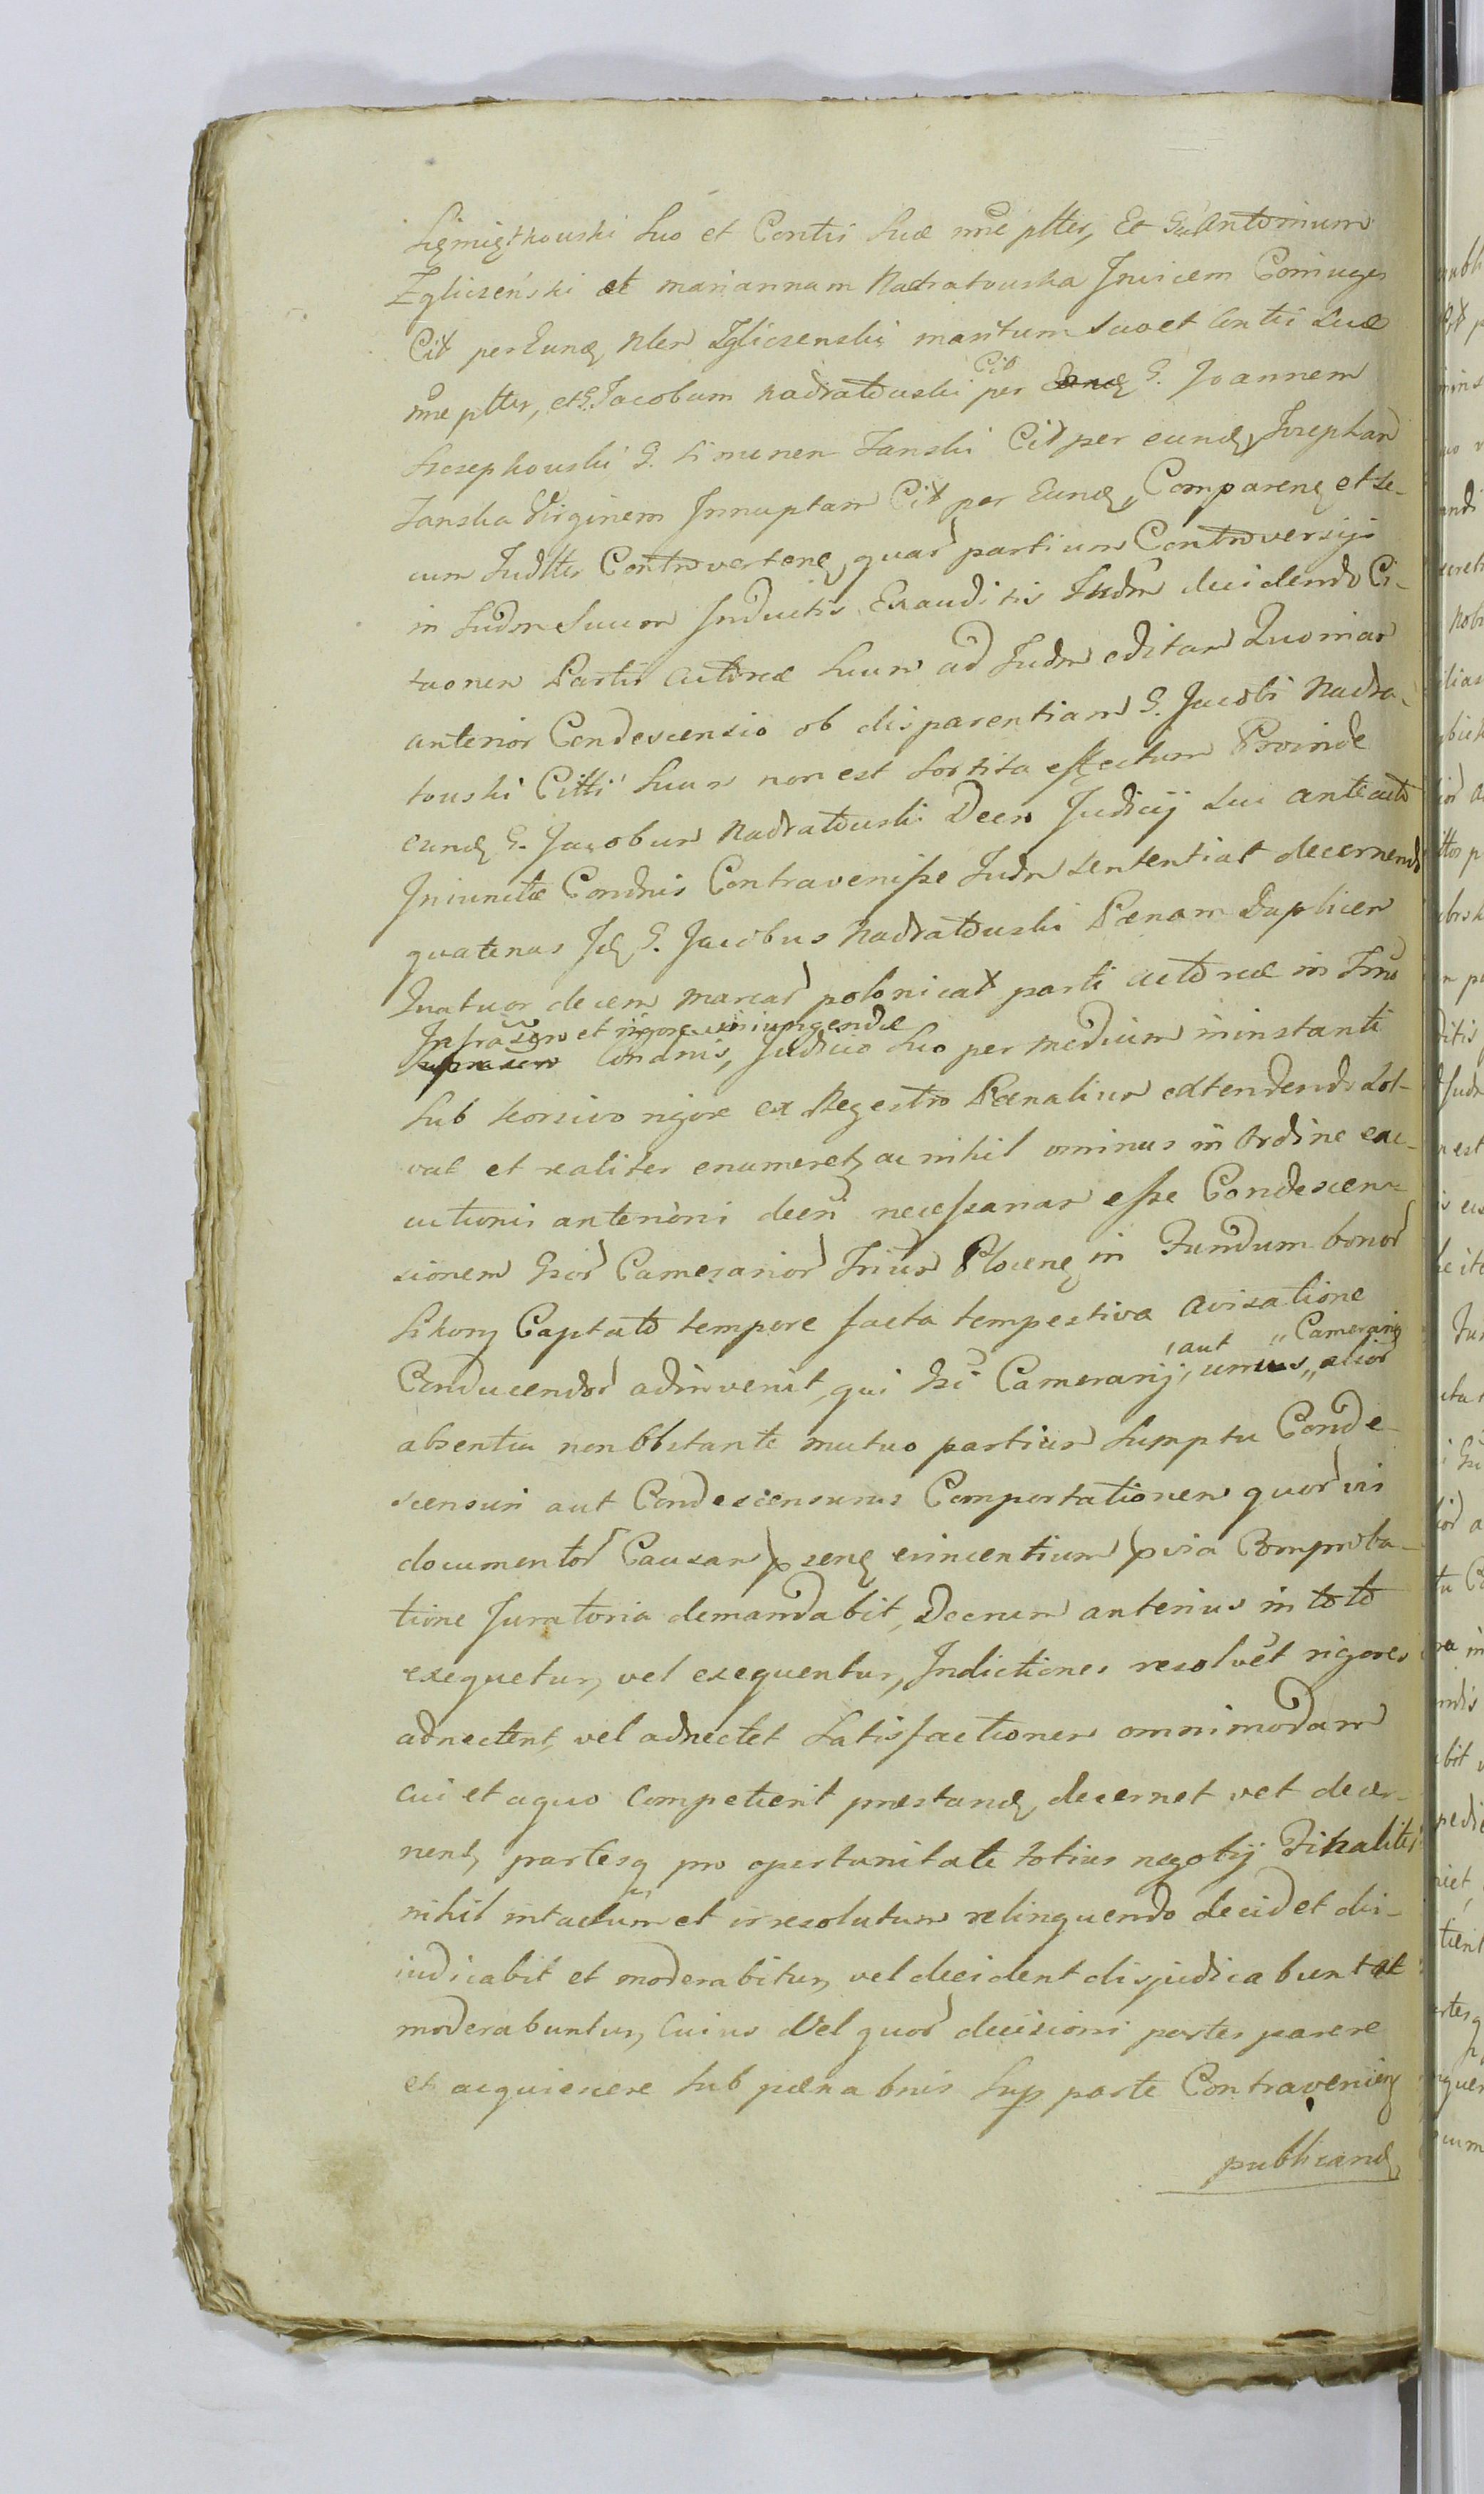 Siemiątkowski Suo et Contis Suæ nne ptter, Et G. Antonium
Zgliczeński et mariannam Nadratowska Invicem Coniuges
Cit per Eund Nlem Zgliczenski maritum Suo et Contis Suæ
nne ptter, et G. Jacobum Nadratowski Cit per G. Joannem
Szczepkowski G. Simonem Janski Cit per eund, Josepham
Janska Virginem Innuptam Cit per Eund, Comparend et se-
cum Judtter Controverten, quar partium Controversijs
in Judm Suum Inductis Exauditis Judm decidendo Ci-
taonem Partis Actoreæ Suum ad Judm editam Quoniam
anterior Condescensio ob disparentiam G. Jacobi Nadra-
towski Citti Suum non est Sortita effectum Proinde
eund G. Jacobum Nadratowski Decr Judicij Sui anteacto
Iniunctæ Condnis Contravenisse Judm sententiat decernendo
quatenus Id G. Jacobus Nadratowski Pænam Duplicem
Quatuor decem marcar polonical parti actoreæ in Trno
Infrascr et rigore iniungendæ
Condnis, Judicio Suo per medium ininstanti
Sub seorsivo rigore ex Regestro Pænalium extendendo Sol-
vat et realiter enumeret, ac nihil ominus in Ordine exe-
cutionis anterioris decri necessariam esse Condescen-
sionem Gsor Camerarior Trium Plocen, in Fundum bonor
Sikory Captato tempore facta tempestiva avisatione
Conducendor adinvenit, qui Gsi Camerarij, aut unus, alior Camerarij
absentia non Obstante mutuo partium Sumptu Conde-
scensuri aut Condescensurus Comportationem quorvis
documentor Causam psend evincentium pvia Comproba-
tione Juratoria demandabit, Decrum anterius in toto
exequetur, vel exequentur, Indictiones resolvet rigores
adnectent, vel adnectet Satisfactionem omnimodam
cui et aquo Competierit præstand, decernet vel decer-
nent, partesq pro opertunitate totius negotij Finaliter
nihil intactum et irresolutum relinquendo decidet dis-
iudicabit et moderabitur, vel decident disjudicabunt et
moderabuntur, Cuius Vel quor decisioni partes parere
et acquiescere Sub pæna bnis Sup parte Contravenien
publicand,